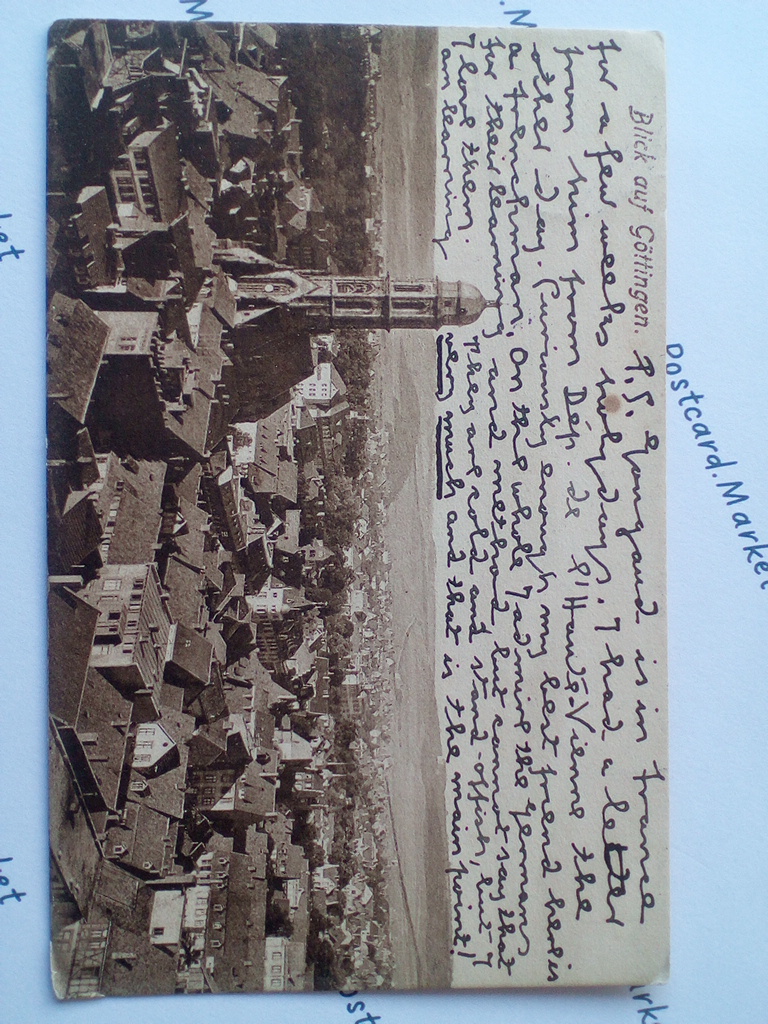 Blick auf Göttingen. P.S. Gougaud is in France
for a few weeks holydays. I had a letter
from him from Dép. de l'Haute-Vienne the
other day. Curiously enough my best friend here is
a frenchman. On the whole I admire the Germans
for their learning and method but cannot say that
I love them. They are cold and stand-offish, but I
am learning very much and that is the main point!
Postcard.Market